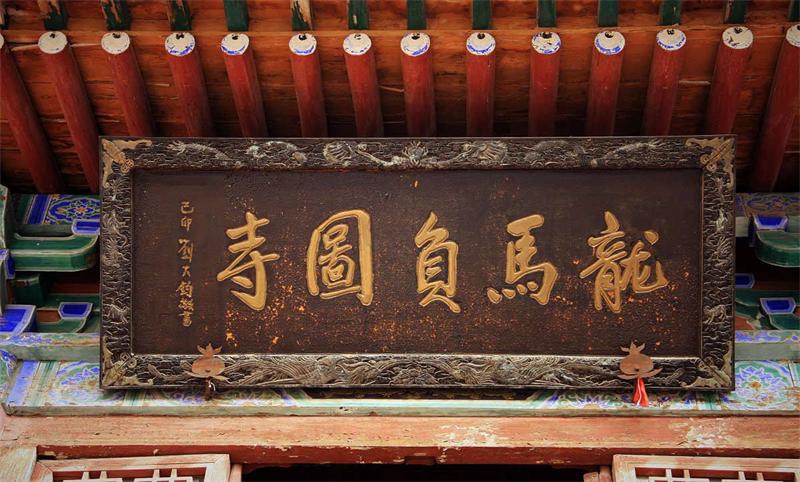 龍馬負圖寺
己卯 劉大鈞敬書